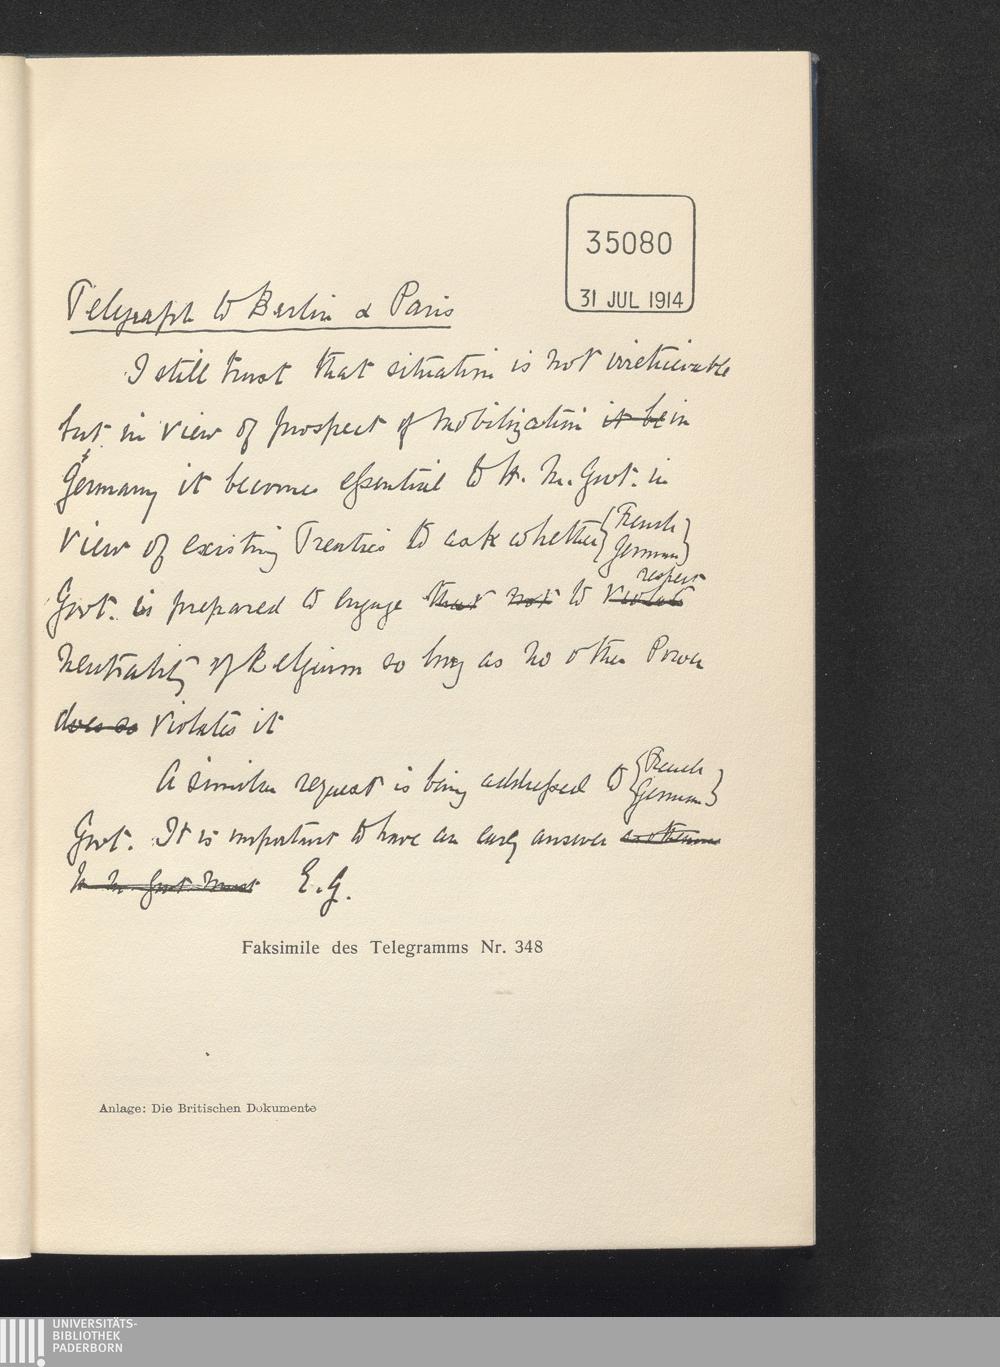 35080
31 JUL 1914
Telegraph to Berlin & Paris
I still trust that situation is not irretrievable
but in view of prospect of mobilization it be in
Germany it becomes essential to H. M. Govt. in
view of existing Treaties to ask whether {French
German}
Govt. is prepared to engage that not to violate
respect
neutrality of Belgium so long as no other Power
does so violates it
A similar request is being addressed to {French
German}
Govt. It is important to have an early answer as otherwise
H. M. Govt. must E. G.
Faksimile des Telegramms Nr. 348
Anlage: Die Britischen Dokumente
UNIVERSITÄTS-
BIBLIOTHEK
PADERBORN